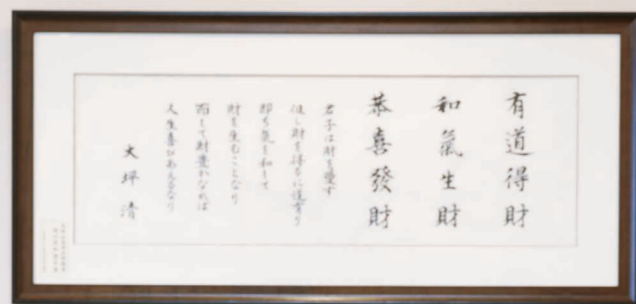 有道得財
和氣生財
恭喜發財
君子は財を愛す
但し財を得るに道有り
即ち氣を和して
財を生むことなり
而して財豊かなれば
人生喜びあふるなり
大坪清